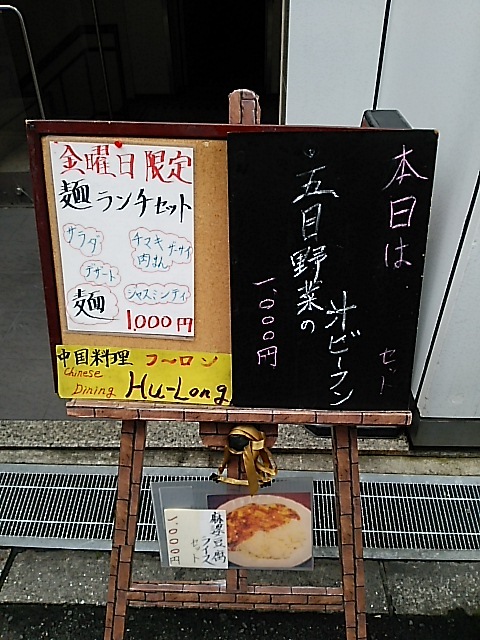 金曜日限定
麺ランチセット
サラダ
チマキ
肉まん
ザーサイ
デザート
麺
ジャスミンティ
1,000円
中国料理 フーロン
Chinese
Dining Hu-Long
本日は
五目野菜の
汁ビーフン
セット
一,〇〇〇円
麻婆豆腐
ライス
セット
一,〇〇〇円